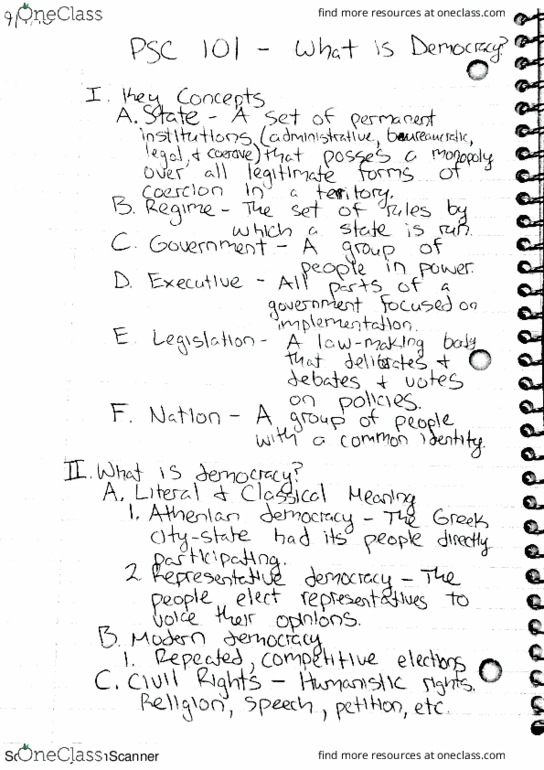 OneClass
find more resources at oneclass.com
PSC 101 - What is Democracy?
I. Key Concepts
A. State - A set of permanent
institutions (administrative, beureaucratic,
legal, + coerove) that posses a monopoly
over all legitimate forms of
coercion in a territory.
B. Regime - The set of rules by
which a state is run.
C. Government - A group of
people in power.
D. Executive - All parts of a
government focused on
implementation.
E. Legislation - A law-making body
that deliberates +
debates + votes
on policies.
F. Nation - A group of people
with a common identity.
II. What is democracy?
A. Literal + Classical Meaning
1. Athenian democracy - The Greek
city-state had its people directly
participating.
2. Representative democracy - The
people elect representatives to
voice their opinions.
B. Modern democracy
1. Repeated, competitive elections
C. Civil Rights - Humanistic rights.
Religion, speech, petition, etc.
OneClass Scanner
find more resources at oneclass.com